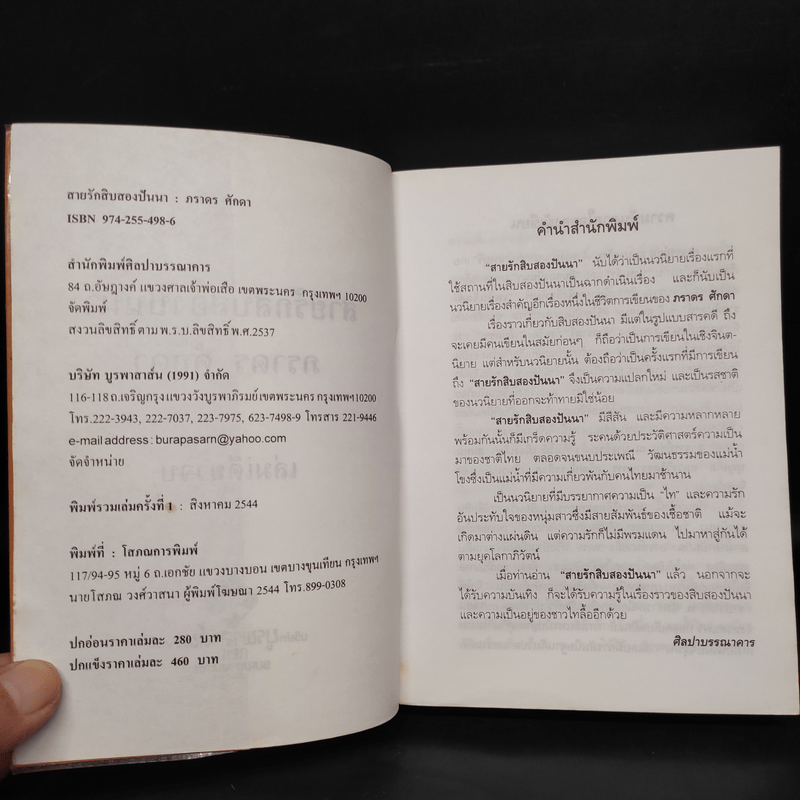 สายรักสิบสองปันนา : ภราดร ศักดา
ISBN 974-255-498-6
สำนักพิมพ์ศิลปาบรรณาคาร
84 ถ.อัษฎางค์ แขวงศาลเจ้าพ่อเสือ เขตพระนคร กรุงเทพฯ 10200
จัดพิมพ์
สงวนลิขสิทธิ์ ตาม พ.ร.บ.ลิขสิทธิ์ พ.ศ.2537
บริษัท บูรพาสาส์น (1991) จำกัด
116-118 ถ.เจริญกรุง แขวงวังบูรพาภิรมย์ เขตพระนคร กรุงเทพฯ10200
โทร.222-3943, 222-7037, 223-7975, 623-7498-9 โทรสาร 221-9446
e-mail address : burapasarn@yahoo.com
จัดจำหน่าย
พิมพ์รวมเล่มครั้งที่ 1 : สิงหาคม 2544
พิมพ์ที่ : โสภณการพิมพ์
117/94-95 หมู่ 6 ถ.เอกชัย แขวงบางบอน เขตบางขุนเทียน กรุงเทพฯ
นายโสภณ วงศ์วาสนา ผู้พิมพ์โฆษณา 2544 โทร.899-0308
ปกอ่อนราคาเล่มละ 280 บาท
ปกแข็งราคาเล่มละ 460 บาท
คำนำสำนักพิมพ์
“สายรักสิบสองปันนา” นับได้ว่าเป็นนวนิยายเรื่องแรกที่
ใช้สถานที่ในสิบสองปันนาเป็นฉากดำเนินเรื่อง และก็นับเป็น
นวนิยายเรื่องสำคัญอีกเรื่องหนึ่งในชีวิตการเขียนของ ภราดร ศักดา
เรื่องราวเกี่ยวกับสิบสองปันนา มีแต่ในรูปแบบสารคดี ถึง
จะเคยมีคนเขียนในสมัยก่อนๆ ก็ถือว่าเป็นการเขียนในเชิงจินต-
นิยาย แต่สำหรับนวนิยายนั้น ต้องถือว่าเป็นครั้งแรกที่มีการเขียน
ถึง “สายรักสิบสองปันนา” จึงเป็นความแปลกใหม่ และเป็นรสชาติ
ของนวนิยายที่ออกจะท้าทายมิใช่น้อย
“สายรักสิบสองปันนา” มีสีสัน และมีความหลากหลาย
พร้อมกันนั้นก็มีเกร็ดความรู้ ระคนด้วยประวัติศาสตร์ความเป็น
มาของชาติไทย ตลอดจนขนบประเพณี วัฒนธรรมของแม่น้ำ
โขงซึ่งเป็นแม่น้ำที่มีความเกี่ยวพันกับคนไทยมาช้านาน
เป็นนวนิยายที่มีบรรยากาศความเป็น “ไท” และความรัก
อันประทับใจของหนุ่มสาวซึ่งมีสายสัมพันธ์ของเชื้อชาติ แม้จะ
เกิดมาต่างแผ่นดิน แต่ความรักก็ไม่มีพรมแดน ไปมาหาสู่กันได้
ตามยุคโลกาภิวัตน์
เมื่อท่านอ่าน “สายรักสิบสองปันนา” แล้ว นอกจากจะ
ได้รับความบันเทิง ก็จะได้รับความรู้ในเรื่องราวของสิบสองปันนา
และความเป็นอยู่ของชาวไทลื้ออีกด้วย
ศิลปาบรรณาคาร